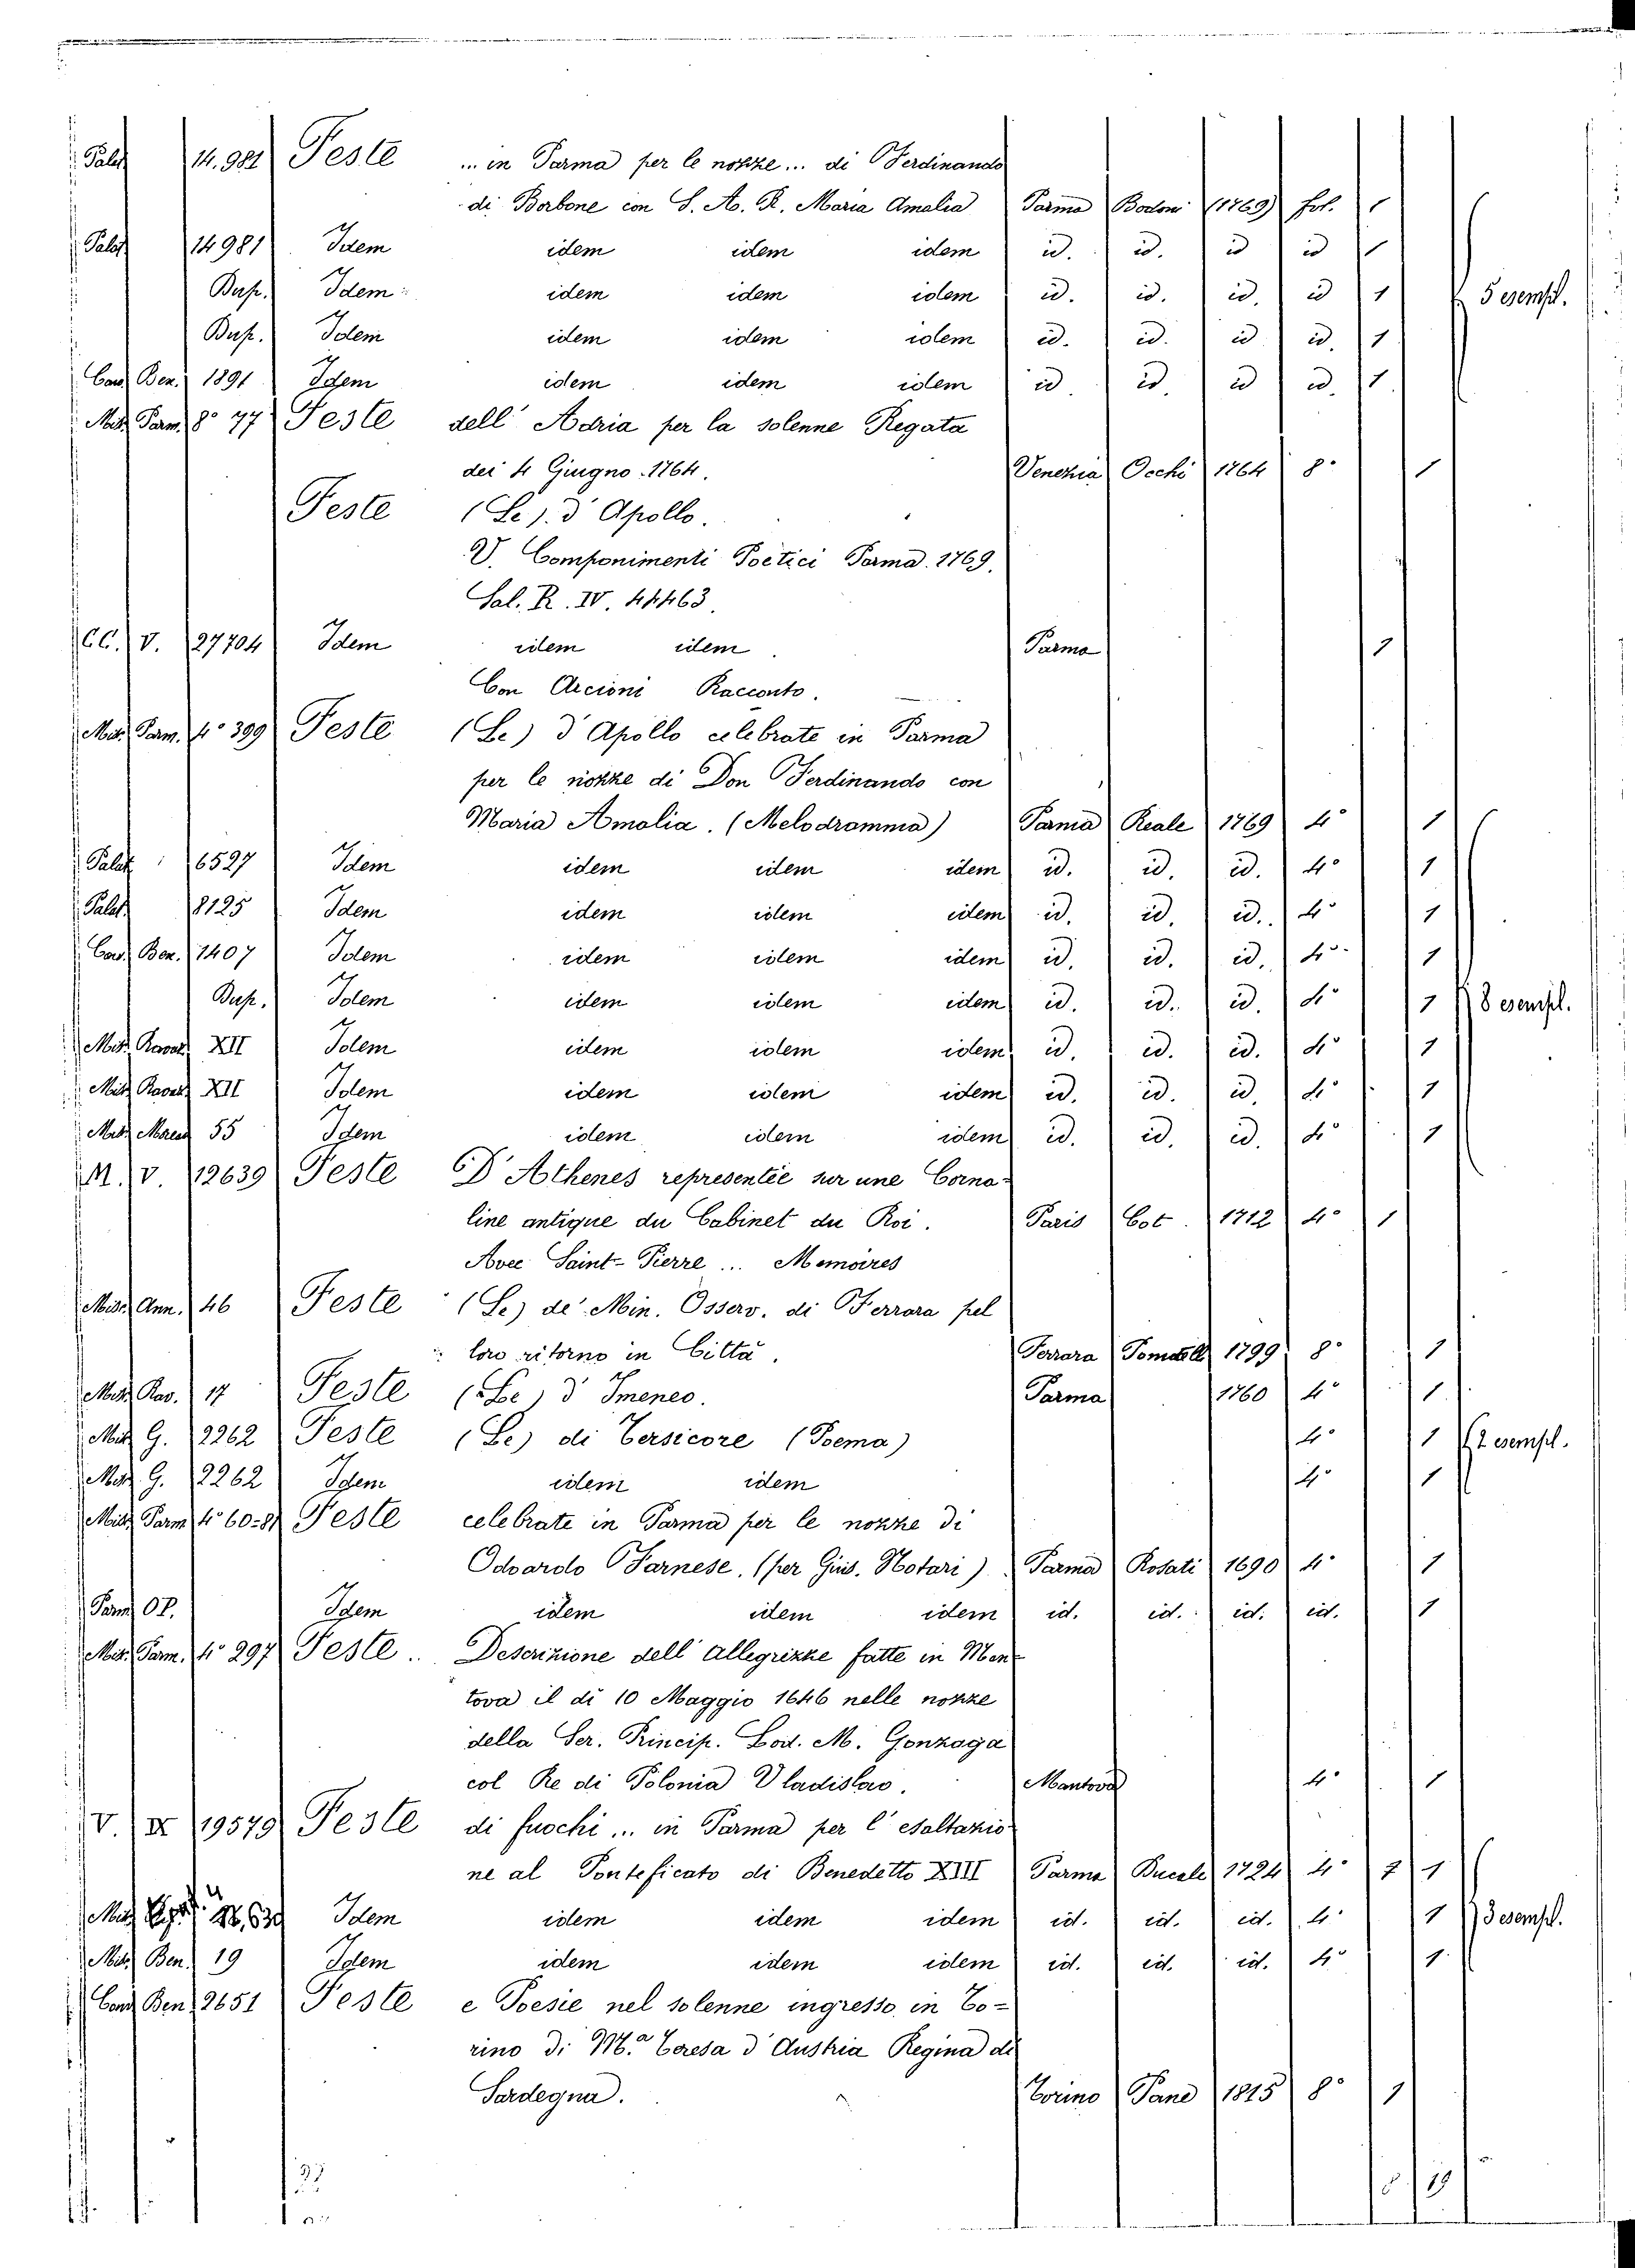 Palat 14.981 Feste ... in Parma per le nozze... di Ferdinando
di Borbone con S. A. R. Maria Amalia Parma Bodoni (1769) fol. 1
Palat 14981 Idem idem idem idem id. id. id id 1
Dup. Idem idem idem idem id. id. id. id 1 5 esempl.
Dup. Idem idem idem idem id. id. id id. 1
Cass. Ben. 1891 Idem idem idem idem id id id id. 1
Misc. Parm. 8° 77 Feste dell' Adria per la solenne Regata
dei 4 Giugno 1764. Venezia Occhi 1764 8° 1
Feste (Le). d' Apollo.
V. Componimenti Poetici Parma. 1769.
Sal. R. IV. 44463.
CC. V. 27704 Idem idem idem Parma 1
Con Arcioni Racconto.
Misc. Parm. 4° 399 Feste (Le) d' Apollo celebrate in Parma
per le nozze di Don Ferdinando con
Maria Amalia. (Melodramma) Parma Reale 1769 4° 1
Palat 6527 Idem idem idem idem id. id. id. 4° 1
Palat 8125 Idem idem idem idem id. id. id. 4° 1
Cass. Ben. 1407 Idem idem idem idem id. id. id. 4° 1
Dup. Idem idem idem idem id. id. id. 4° 1 8 esempl.
Misc. XII Idem idem idem idem id. id. id. 4° 1
Misc. XII Idem idem idem idem id. id. id. 4° 1
Misc. 55 Idem idem idem idem id. id. id. 4° 1
M. V. 12639 Feste D' Athenes representée sur une Corna-
line antique du Cabinet du Roi. Paris Cot. 1712 4° 1
Avec Saint-Pierre ... Memoires
Misc. Ann. 46 Feste (Le) de' Min. Osserv. di Ferrara pel
loro ritorno in Città. Ferrara 1799 8° 1
Misc. Rav. 17 Feste (Le) d' Imeneo. Parma 1760 4° 1
Misc. G. 2262 Feste (Le) di Tersicore (Poema) 4° 1 2 esempl.
Misc. G. 2262 Idem idem idem 4° 1
Misc. Parm. 4° Feste celebrate in Parma per le nozze di
Odoardo Farnese. (per Gius. Notari) Parma Rosati 1690 4° 1
Parm. Idem idem idem idem id. id. id. id. 1
Misc. Parm. 4° 297 Feste .. Descrizione dell' allegrizze fatte in Man-
tova il di 10 Maggio 1646 nelle nozze
della Ser. Princip. Lod. M. Gonzaga
col Re di Polonia Vladislao. Mantova 4° 1
V. X 19579 Feste di fuochi ... in Parma per l' esaltazio-
ne al Ponteficato di Benedetto XIII Parma 1724 4° 1
Misc. Idem idem idem idem id. id. id. 4° 1 3 esempl.
Misc. Ben. 19 Idem idem idem idem id. id. id. 4° 1
Cass. Ben. 2651 Feste e Poesie nel solenne ingresso in To-
rino di M.a Teresa d' Austria Regina di
Sardegna. Torino Pane 1815 8° 1